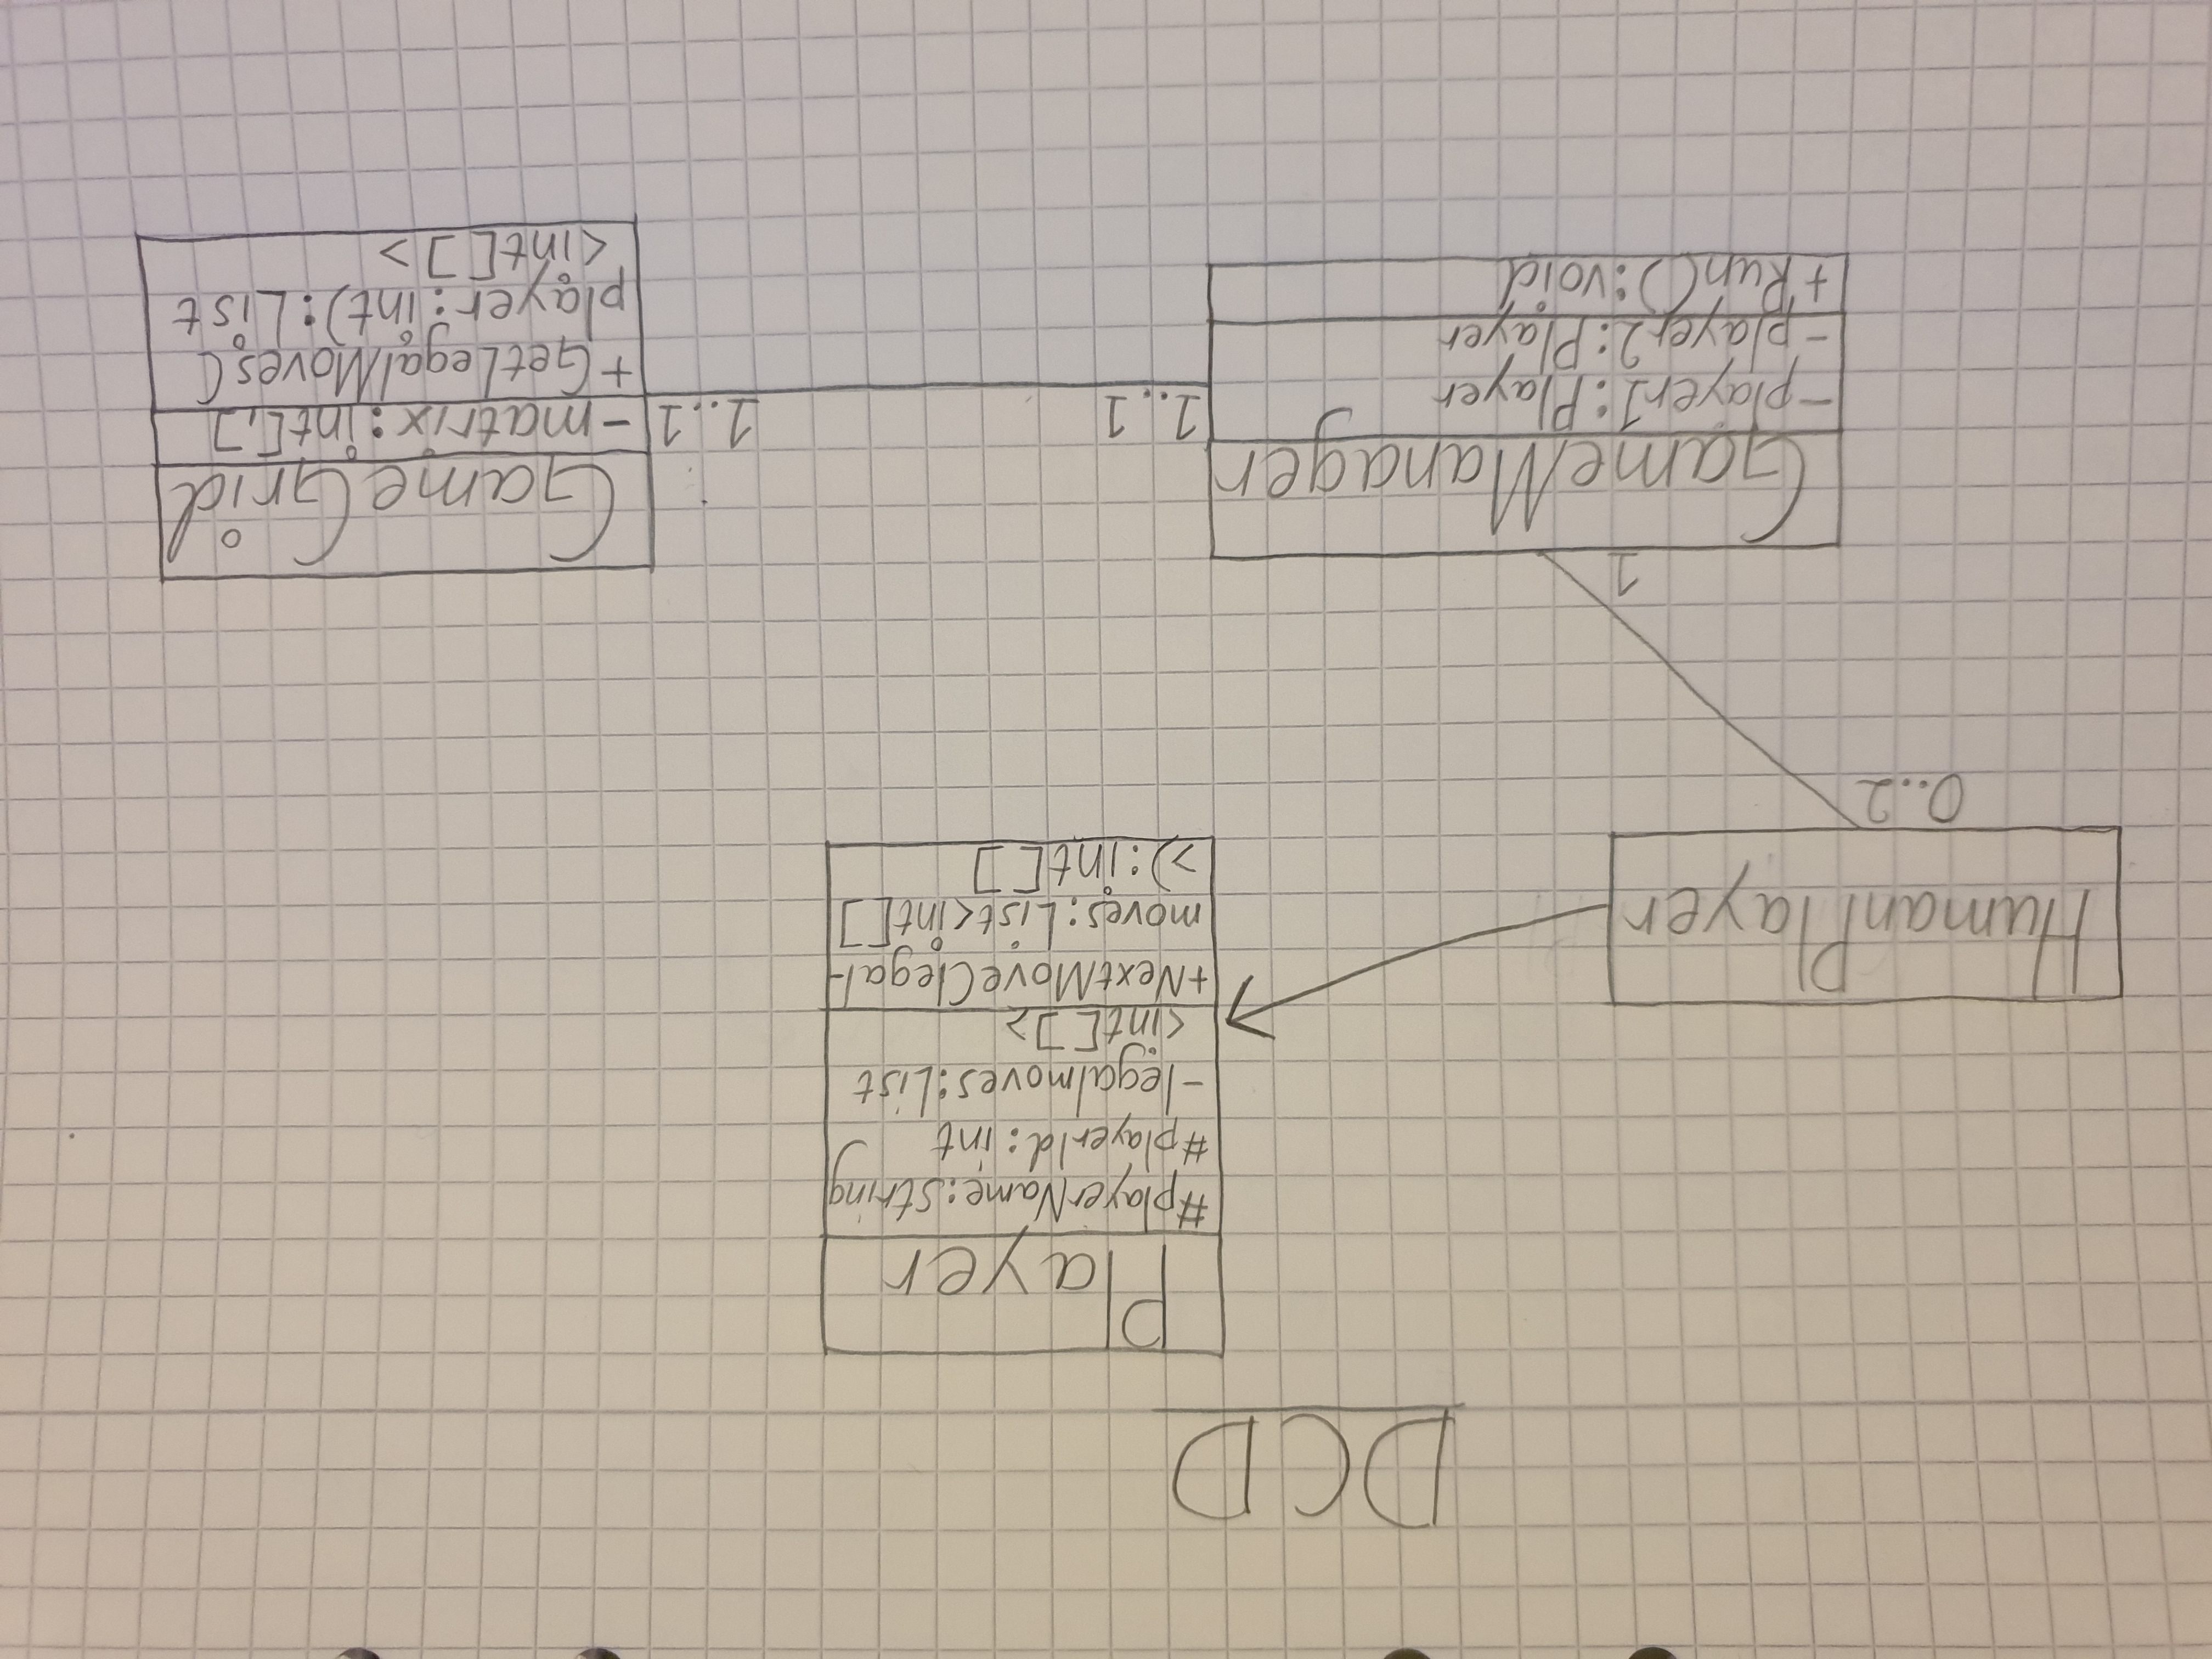 DCD
Player
#playerName:string
#playerId: int
-legalmoves:List
<int[]>
+NextMove(legal-
moves:List<int[]
>):int[]
HumanPlayer
0..2
1
GameManager
-player1:Player
-player2:Player
+Run():void
1..1
1..1
GameGrid
-matrix:int[,]
+GetLegalMoves(
player:int):List
<int[]>